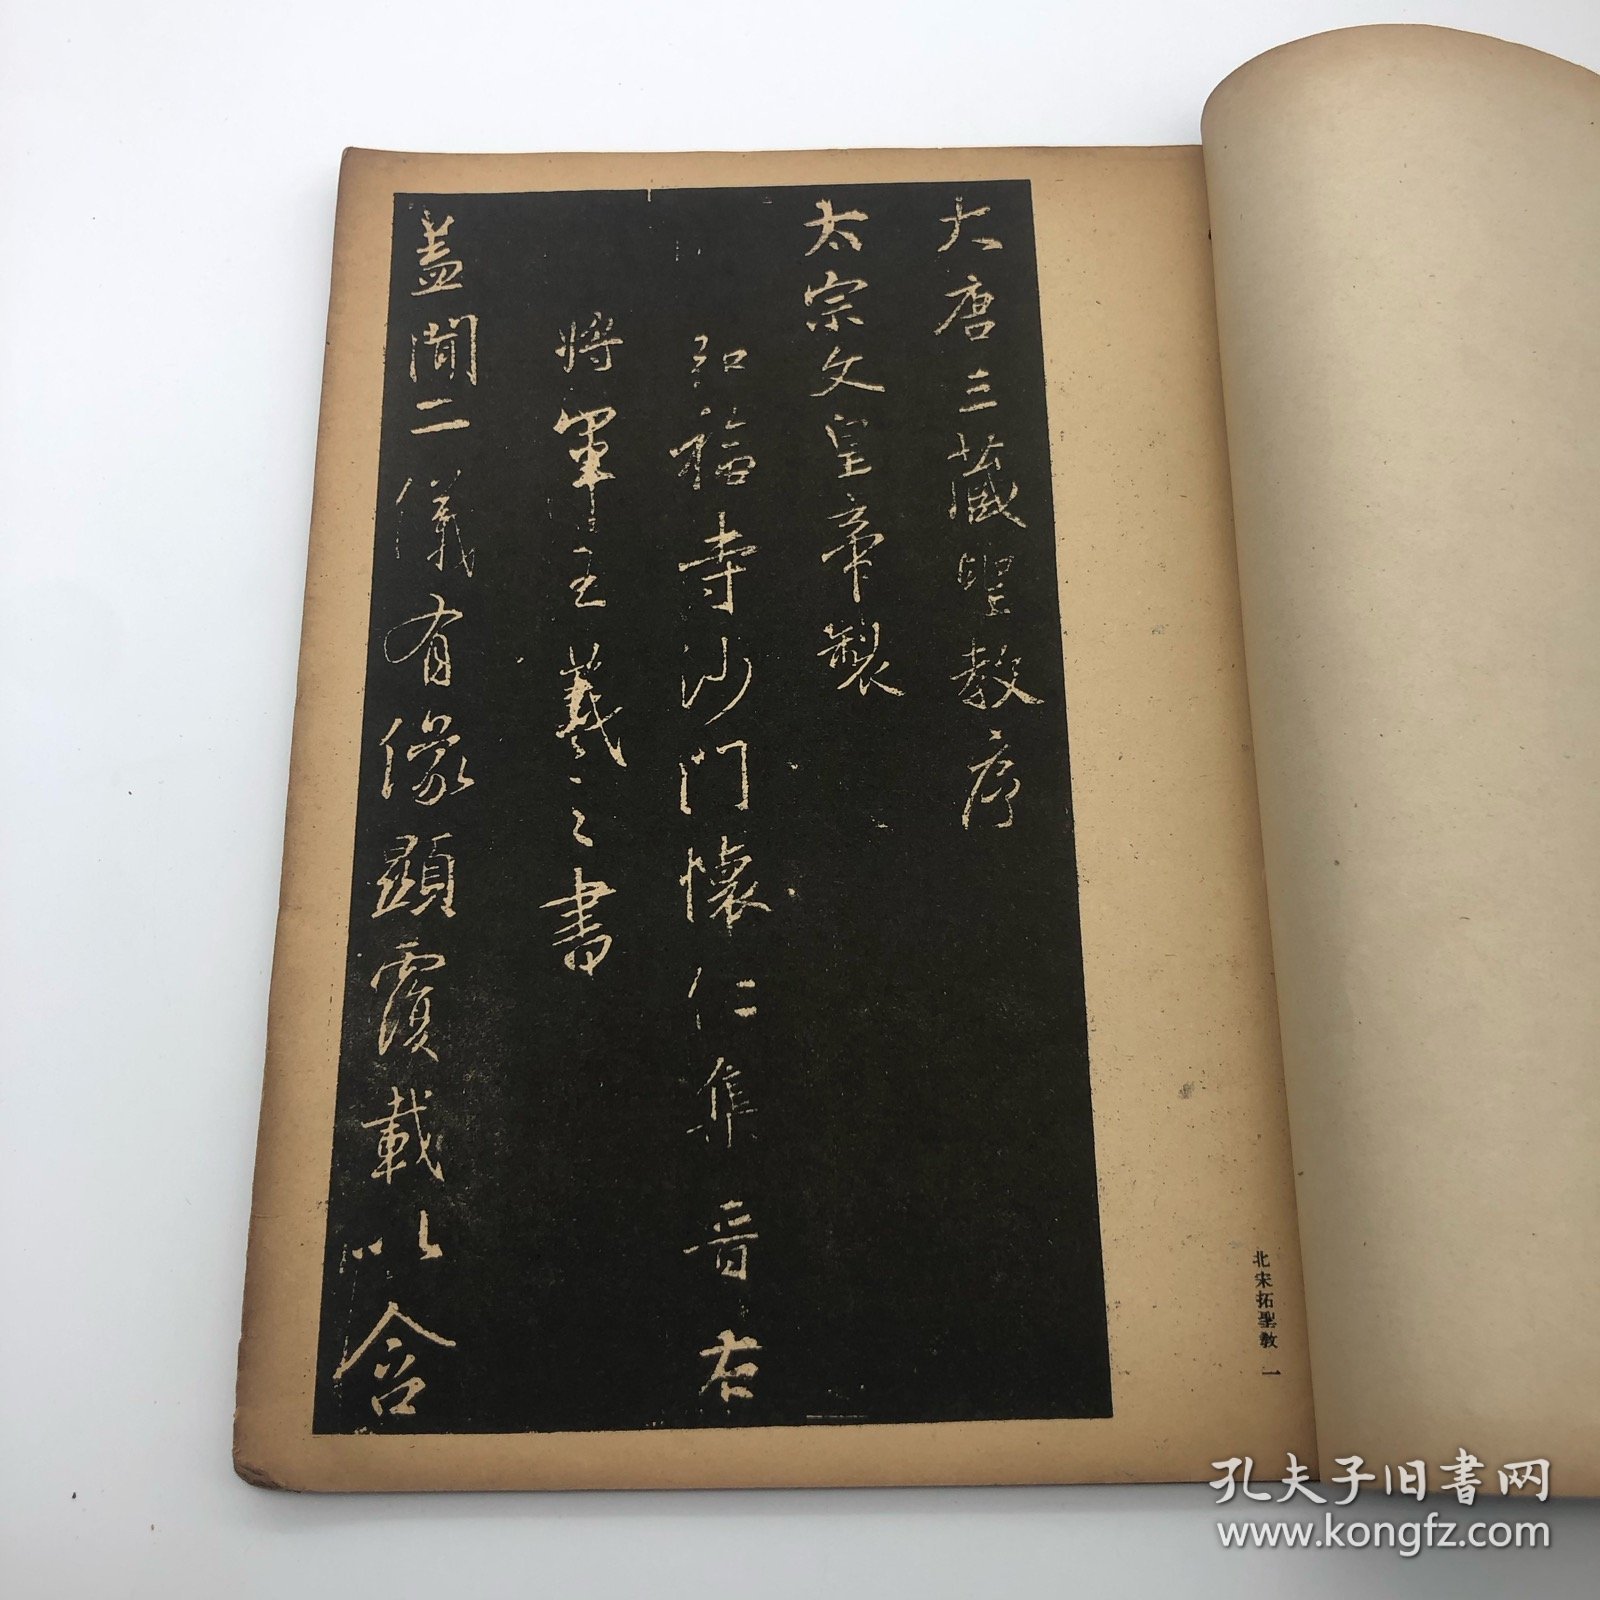 大唐三藏聖教序
太宗文皇帝製
弘福寺沙門懷仁集晉右
將軍王羲之書
蓋聞二儀有像顯覆載以含
北宋拓聖教 一
孔夫子旧书网
www.kongfz.com